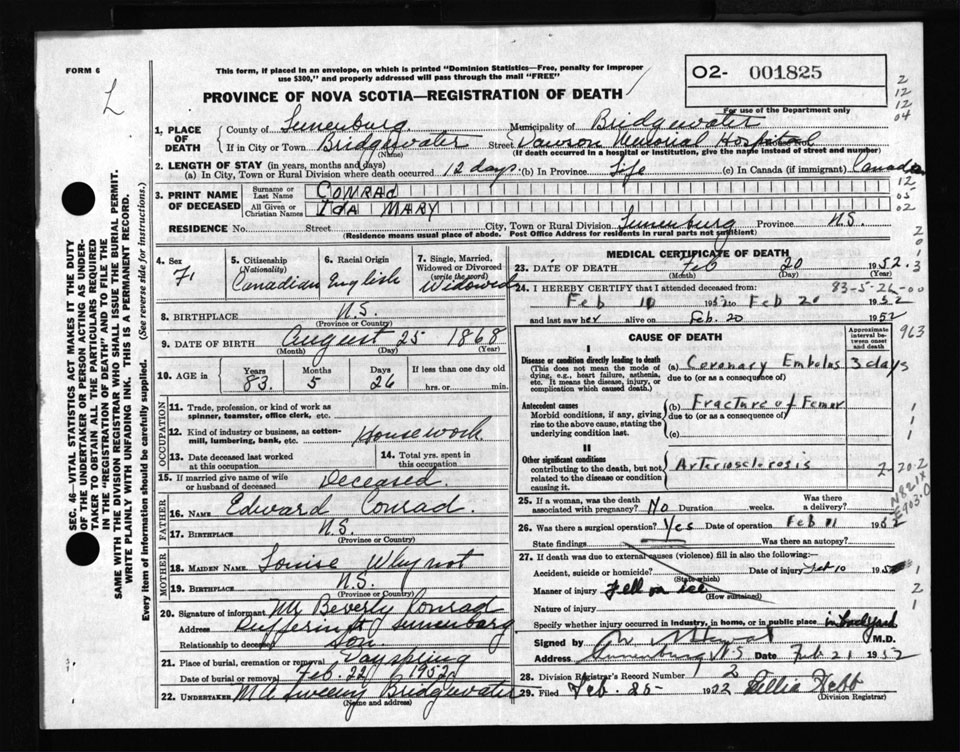 FORM 6
L
This form, if placed in an envelope, on which is printed "Dominion Statistics—Free, penalty for improper
use $300," and properly addressed will pass through the mail "FREE"
PROVINCE OF NOVA SCOTIA—REGISTRATION OF DEATH
O2- 001825
For use of the Department only
2
12
12
04
1. PLACE OF DEATH
County of Lunenburg Municipality of Bridgewater
If in City or Town Bridgewater Street Dawson Memorial Hospital House No.
(Name) (If death occurred in a hospital or institution, give the name instead of street and number)
2. LENGTH OF STAY (in years, months and days)
(a) In City, Town or Rural Division where death occurred 12 days. (b) In Province Life (c) In Canada (if immigrant) Canada
3. PRINT NAME OF DECEASED
Surname or Last Name CONRAD
All Given or Christian Names IDA MARY
12
05
02
RESIDENCE No. Street City, Town or Rural Division Lunenburg Province N.S.
(Residence means usual place of abode. Post Office Address for residents in rural parts not sufficient)
4. Sex F.
5. Citizenship (Nationality) Canadian
6. Racial Origin English
7. Single, Married, Widowed or Divorced (write the word) Widowed
8. BIRTHPLACE N.S.
(Province or Country)
9. DATE OF BIRTH August 25 1868
(Month) (Day) (Year)
10. AGE in Years 83. Months 5 Days 26 If less than one day old
hrs. or min.
OCCUPATION
11. Trade, profession, or kind of work as spinner, teamster, office clerk, etc.
12. Kind of industry or business, as cotton-mill, lumbering, bank, etc. Housework
13. Date deceased last worked at this occupation
14. Total yrs. spent in this occupation
15. If married give name of wife or husband of deceased Deceased.
FATHER
16. NAME Edward Conrad.
17. BIRTHPLACE N.S.
(Province or Country)
MOTHER
18. MAIDEN NAME Louise Whynot
19. BIRTHPLACE N.S.
(Province or Country)
20. Signature of informant Mr Beverly Conrad
Address Dufferin St Lunenburg
Relationship to deceased Son.
21. Place of burial, cremation or removal Dayspring
Date of burial or removal Feb. 22 1952
22. UNDERTAKER M A Sweeny Bridgewater
(Name and address)
MEDICAL CERTIFICATE OF DEATH
23. DATE OF DEATH Feb 20 1952.
(Month) (Day) (Year)
2
0
1
0
3
83-5-26-00
24. I HEREBY CERTIFY that I attended deceased from:
Feb 10 1952 to Feb 20 1952
and last saw her alive on Feb. 20 1952
963
CAUSE OF DEATH
Approximate interval between onset and death
I
Disease or condition directly leading to death
(This does not mean the mode of dying, e.g., heart failure, asthenia, etc. It means the disease, injury, or complication which caused death.)
(a) Coronary Embolus 3 days
due to (or as a consequence of)
Antecedent causes
Morbid conditions, if any, giving rise to the above cause, stating the underlying condition last.
(b) Fracture of Femur
due to (or as a consequence of)
(c)
1
1
1
II
Other significant conditions
contributing to the death, but not related to the disease or condition causing it.
Arteriosclerosis
2-20-2
N821X
E903-0
25. If a woman, was the death associated with pregnancy? No Duration weeks. Was there a delivery?
26. Was there a surgical operation? Yes Date of operation Feb 11 1952
State findings Was there an autopsy?
27. If death was due to external causes (violence) fill in also the following:
Accident, suicide or homicide? Date of injury Feb 10 1952
(State which)
Manner of injury Fell on ice
(How sustained)
Nature of injury
1
2
1
Specify whether injury occurred in industry, in home, or in public place in backyard
Signed by M.D.
Address Lunenburg N.S Date Feb 21 1952
28. Division Registrar's Record Number 2
29. Filed Feb. 25- 1952 Lillia Hebb
(Division Registrar)
SEC. 46—VITAL STATISTICS ACT MAKES IT THE DUTY
OF THE UNDERTAKER OR PERSON ACTING AS UNDER-
TAKER TO OBTAIN ALL THE PARTICULARS REQUIRED
IN THE "REGISTRATION OF DEATH" AND TO FILE THE
SAME WITH THE DIVISION REGISTRAR WHO SHALL ISSUE THE BURIAL PERMIT.
WRITE PLAINLY WITH UNFADING INK. THIS IS A PERMANENT RECORD.
Every item of information should be carefully supplied. (See reverse side for instructions.)